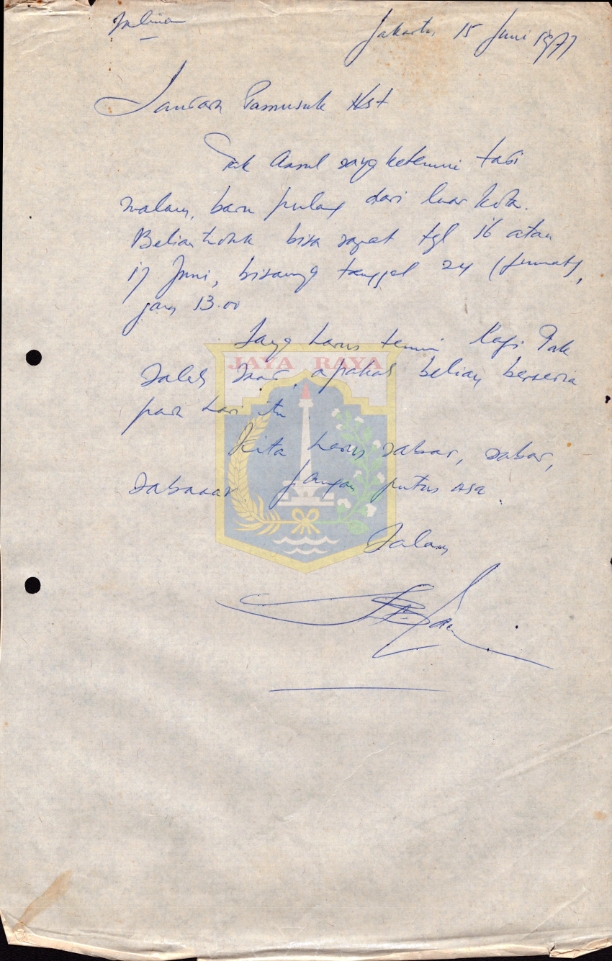 Jakarta 15 Juni 1977
Saudara Pamusuk Nst
Pak Asrul saya ketemui tadi
malam, baru pulang dari luar kota.
Beliau tidak bisa rapat tgl 16 atau
17 Juni, bisanya tanggal 24 (Jumat),
jam 13.00
Saya harus temui lagi Pak
JAYA RAYA
apakah beliau bersedia
pada hari itu
Kita harus sabar, sabar,
jangan putus asa
Salam